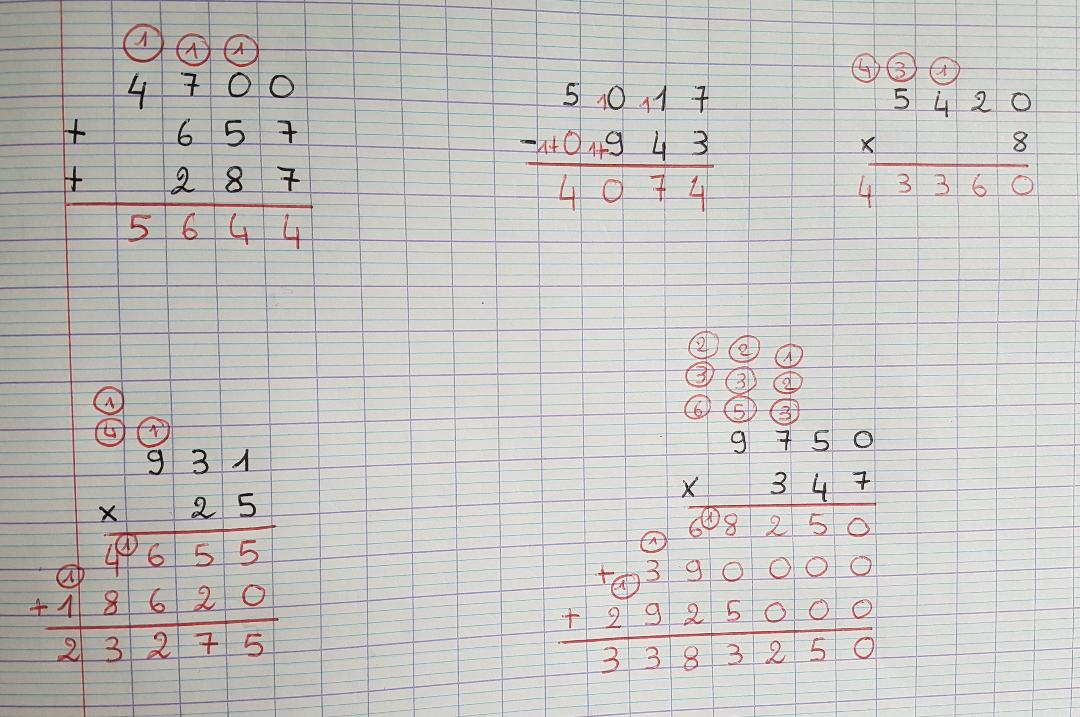 ① ① ①
4 7 0 0
+ 6 5 7
+ 2 8 7
5 6 4 4
5 10 11 7
- 1+0 1+9 4 3
4 0 7 4
④ ③ ①
5 4 2 0
x 8
4 3 3 6 0
①
④ ①
9 3 1
x 2 5
4 ① 6 5 5
①
+ 1 8 6 2 0
2 3 2 7 5
② ② ①
③ ③ ②
⑥ ⑤ ③
9 7 5 0
x 3 4 7
6 ① 8 2 5 0
①
+ 3 9 0 0 0 0
①
+ 2 9 2 5 0 0 0
3 3 8 3 2 5 0